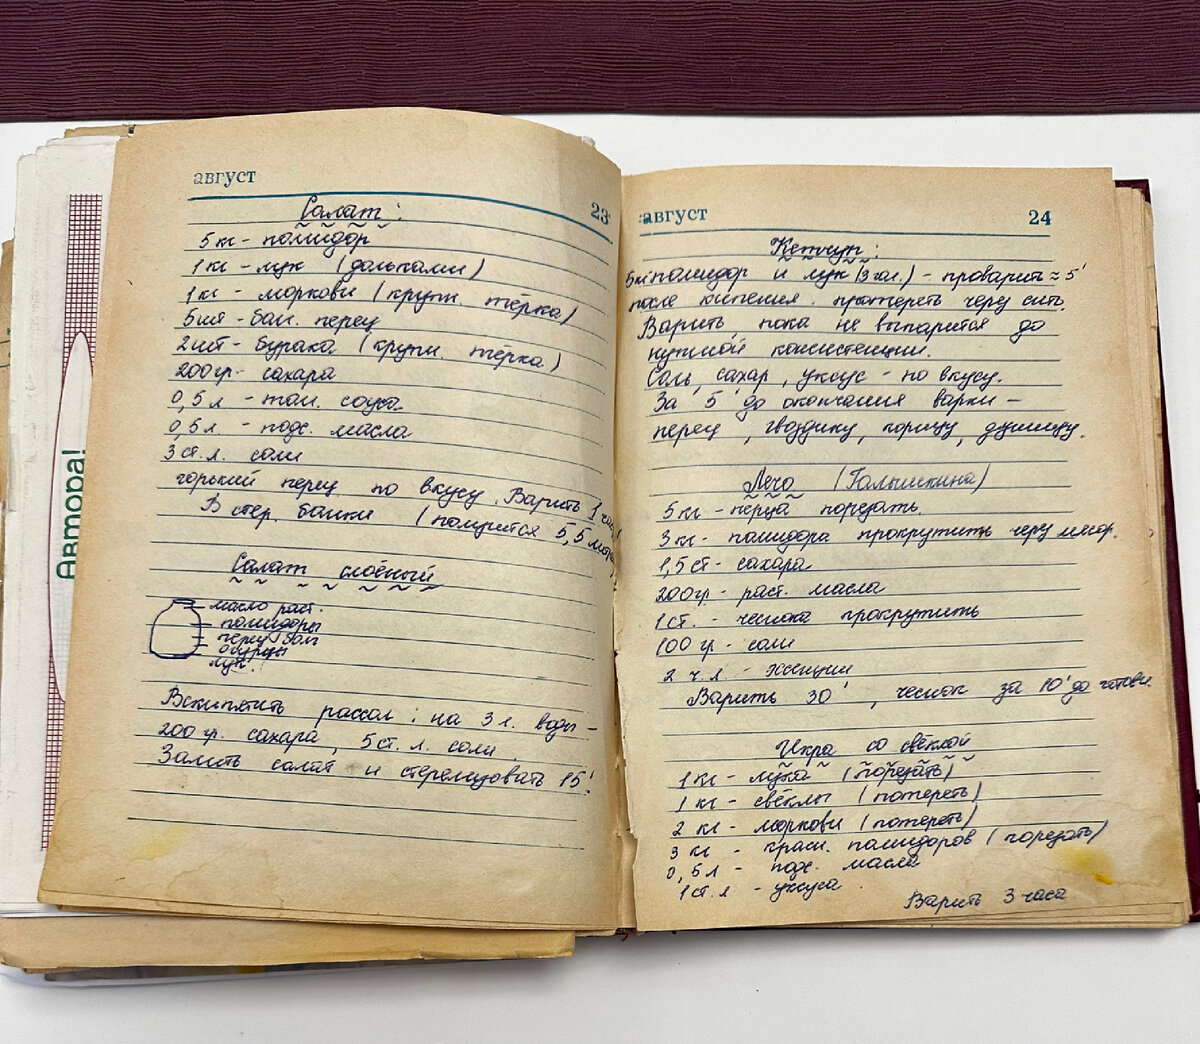 Автора!
август
23
Салат:
5 кг - помидор
1 кг - лук (дольками)
1 кг - моркови (крупн. тёрка)
5 шт - бол. перец
2 шт - бурака (крупн. тёрка)
200 гр. сахара
0,5 л - том. соуса
0,5 л. - подс. масла
3 ст. л. соли
горький перец по вкусу. Варить 1 час!
В стер. банки (получится 5,5 литр
Салат слоёный
масло раст.
помидоры
перец бол
огурцы
лук!
Вскипятить рассол: на 3 л. воды -
200 гр. сахара, 5 ст. л. соли
Залить салат и стерелизовать 15'!
август
24
Кетчуп:
5 кг помидор и лук (3 гол.) - проварить ≈ 5'
после кипения. протереть через сито.
Варить, пока не выпарится до
нужной консистенции.
Соль, сахар, уксус - по вкусу.
За 5' до окончания варки -
перец, гвоздику, корицу, душицу.
Лечо
5 кг - перца порезать.
3 кг - помидора прокрутить через мясор.
1,5 ст - сахара
200 гр. - раст. масла
1 ст. - чеснока прокрутить
100 гр - соли
2 ч. л. - эссенции
Варить 30', чеснок за 10' до готовн.
Икра со свёклой
1 кг - лука (порезать)
1 кг - свёклы (потереть)
2 кг - моркови (потереть)
3 кг - красн. помидоров (порезать)
0,5 л - подс. масла
1 ст. л - уксуса.
Варить 3 часа